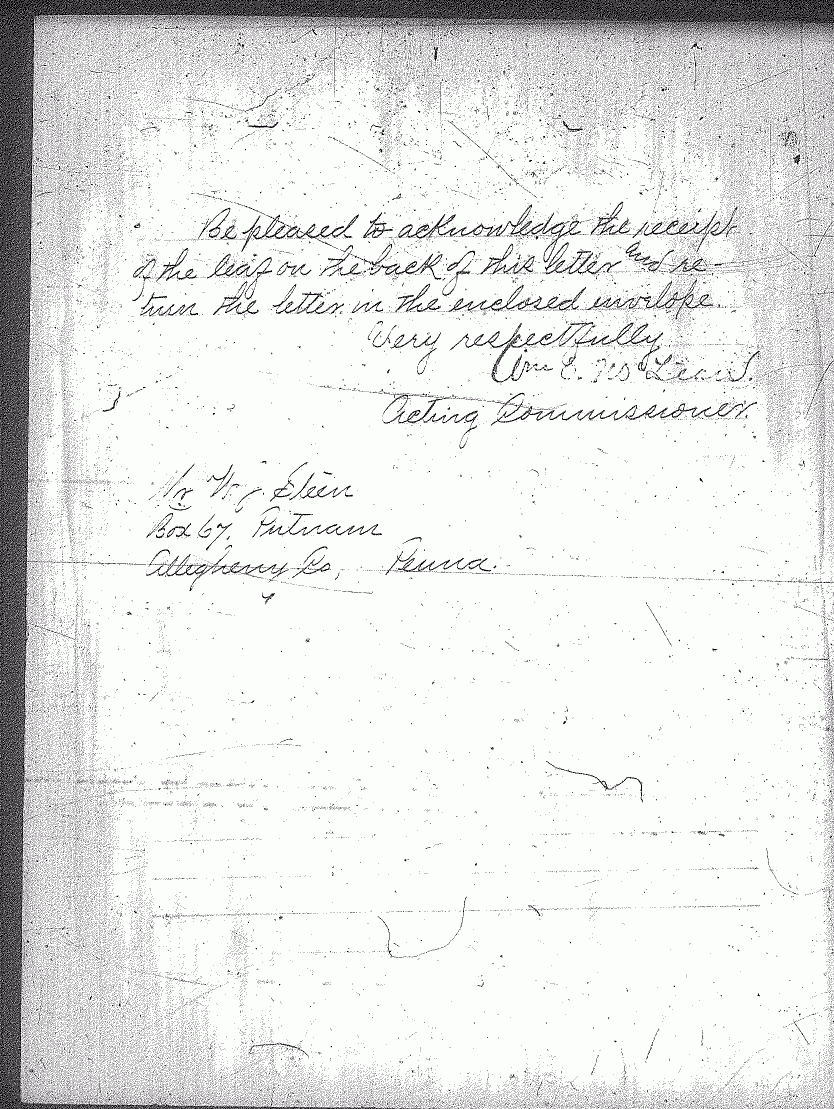 Be pleased to acknowledge the receipt
of the leaf on the back of this letter and re-
turn the letter in the enclosed envelope.
Very respectfully
Wm E. McLean.
Acting Commissioner.
Mr W. J. Steen
Box 67, Putnam
Allegheny Co, Penna.